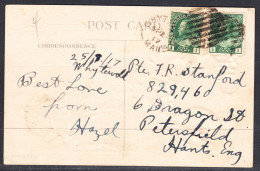 POST CARD
CORRESPONDENCE
25/9/17
Whytewold
Best Love
from
Hazel
Pte. F.R. Stanford
829,460
6 Dragon St
Petersfield
Hants. Eng